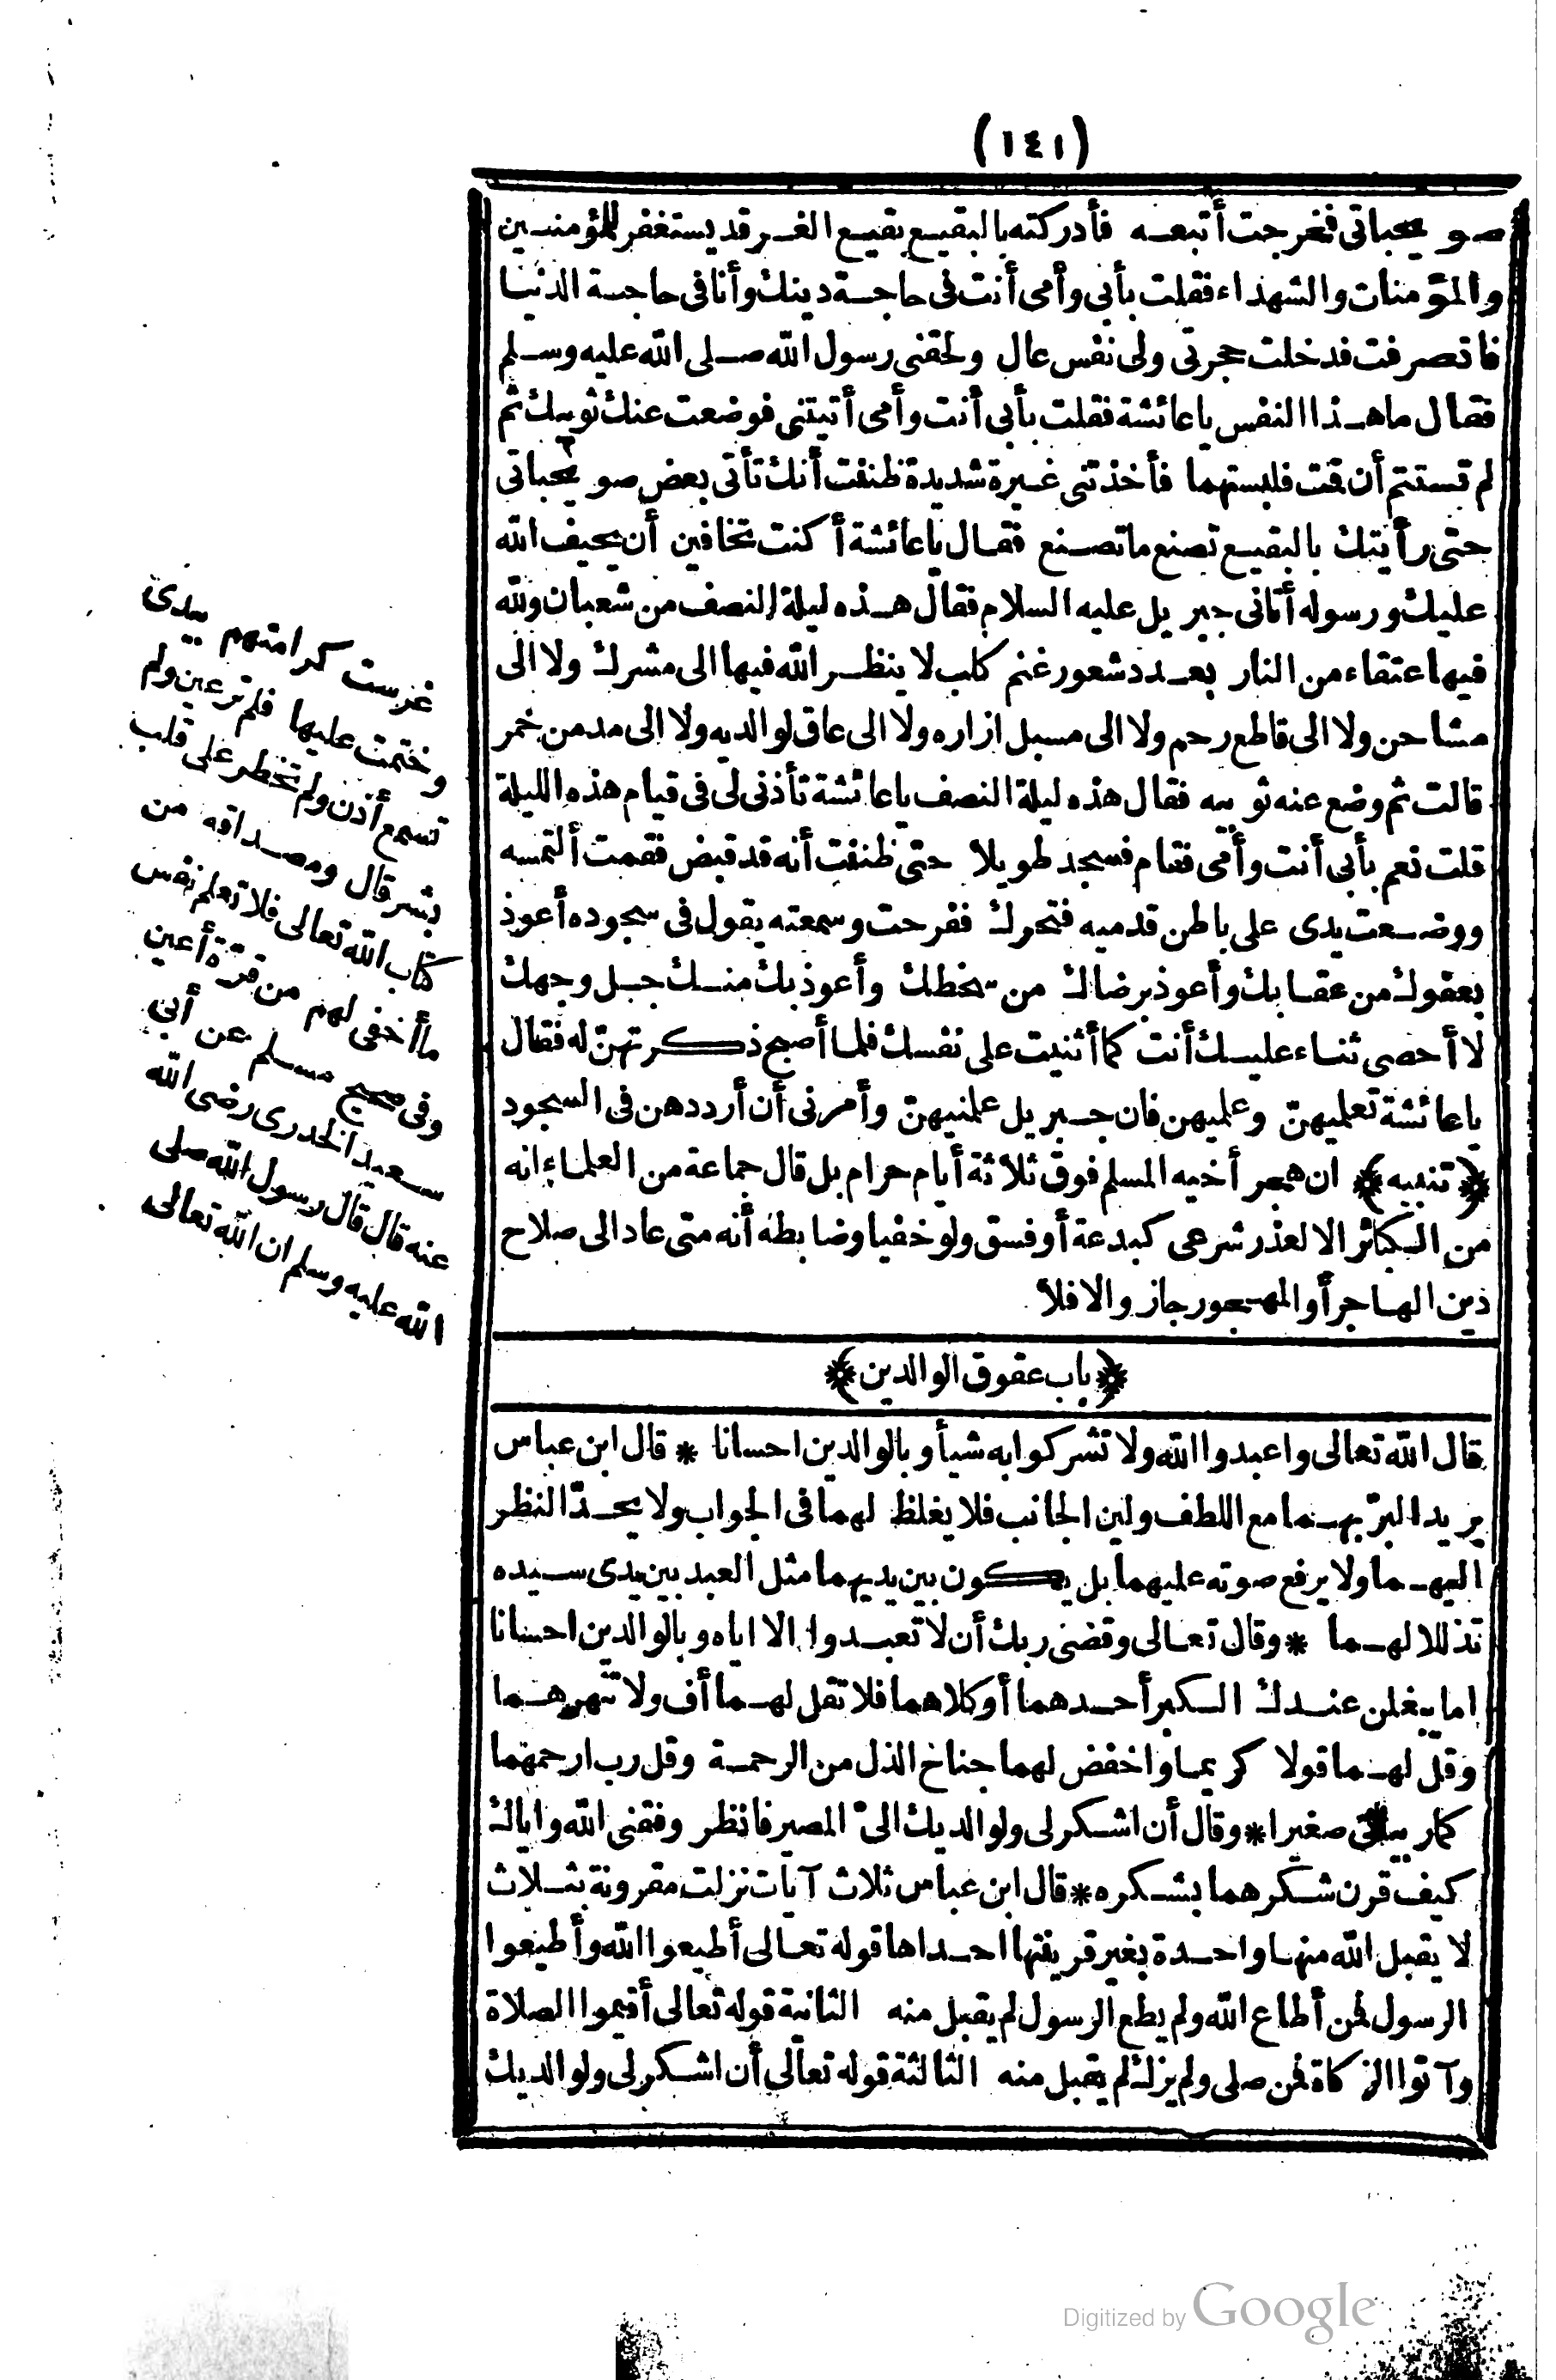 (١٤١)
صو يحباتى فخرجت أتبعه فأدركته بالبقيع بقيع الغرقد يستغفر للمؤمنين
والمؤمنات والشهداء فقلت بأبى وأمى أنت فى حاجة دينك وأنا فى حاجة الدنيا
فانصرفت فدخلت حجرتى ولى نفس عال ولحقنى رسول الله صلى الله عليه وسلم
فقال ما هذا النفس يا عائشة فقلت بأبى أنت وأمى أتيتنى فوضعت عنك ثوبيك ثم
لم تستتم أن قمت فلبستهما فأخذتنى غيرة شديدة ظننت أنك تأتى بعض صو يحباتى
حتى رأيتك بالبقيع تصنع ما تصنع فقال يا عائشة أكنت تخافين أن يحيف الله
عليك ورسوله أتانى جبريل عليه السلام فقال هذه ليلة النصف من شعبان ولله
فيها عتقاء من النار بعدد شعور غنم كلب لا ينظر الله فيها الى مشرك ولا الى
مشاحن ولا الى قاطع رحم ولا الى مسبل ازاره ولا الى عاق لوالديه ولا الى مدمن خمر
قالت ثم وضع عنه ثوبيه فقال هذه ليلة النصف يا عائشة تأذنى لى فى قيام هذه الليلة
قلت نعم بأبى أنت وأمى فقام فسجد طويلا حتى ظننت أنه قد قبض فقمت ألتمسه
ووضعت يدى على باطن قدميه فتحرك ففرحت وسمعته يقول فى سجوده أعوذ
بعفوك من عقابك وأعوذ برضاك من سخطك وأعوذ بك منك جل وجهك
لا أحصى ثناء عليك أنت كما أثنيت على نفسك فلما أصبح ذكرتهن له فقال
يا عائشة تعلميهن وعلميهن فان جبريل علمنيهن وأمرنى أن أرددهن فى السجود
﴿تنبيه﴾ ان هجر أخيه المسلم فوق ثلاثة أيام حرام بل قال جماعة من العلماء انه
من الكبائر الا لعذر شرعى كبدعة أو فسق ولو خفيا وضابطه أنه متى عاد الى صلاح
دين الهاجر أو المهجور جاز والا فلا
﴿باب عقوق الوالدين﴾
قال الله تعالى واعبدوا الله ولا تشركوا به شيأ وبالوالدين احسانا * قال ابن عباس
يريد البر بهما مع اللطف ولين الجانب فلا يغلظ لهما فى الجواب ولا يحد النظر
اليهما ولا يرفع صوته عليهما بل يكون بين يديهما مثل العبد بين يدى سيده
تذللا لهما * وقال تعالى وقضى ربك أن لا تعبدوا الا اياه وبالوالدين احسانا
اما يبلغن عندك الكبر أحدهما أو كلاهما فلا تقل لهما أف ولا تنهرهما
وقل لهما قولا كريما واخفض لهما جناح الذل من الرحمة وقل رب ارحمهما
كما ربيانى صغيرا * وقال أن اشكر لى ولوالديك الى المصير فانظر وفقنى الله واياك
كيف قرن شكرهما بشكره * قال ابن عباس ثلاث آيات نزلت مقرونة بثلاث
لا يقبل الله منها واحدة بغير قرينتها احداها قوله تعالى أطيعوا الله وأطيعوا
الرسول فمن أطاع الله ولم يطع الرسول لم يقبل منه الثانية قوله تعالى أقيموا الصلاة
وآتوا الزكاة فمن صلى ولم يزك لم يقبل منه الثالثة قوله تعالى أن اشكر لى ولوالديك
غرست كرامتهم بيدى
وختمت عليها فلم تر عين ولم
تسمع أذن ولم تخطر على قلب
بشر قال ومصداقه من
كتاب الله تعالى فلا تعلم نفس
ما أخفى لهم من قرة أعين
وفى صحيح مسلم عن أبى
سعيد الخدرى رضى الله
عنه قال قال رسول الله صلى
الله عليه وسلم ان الله تعالى
Digitized by Google